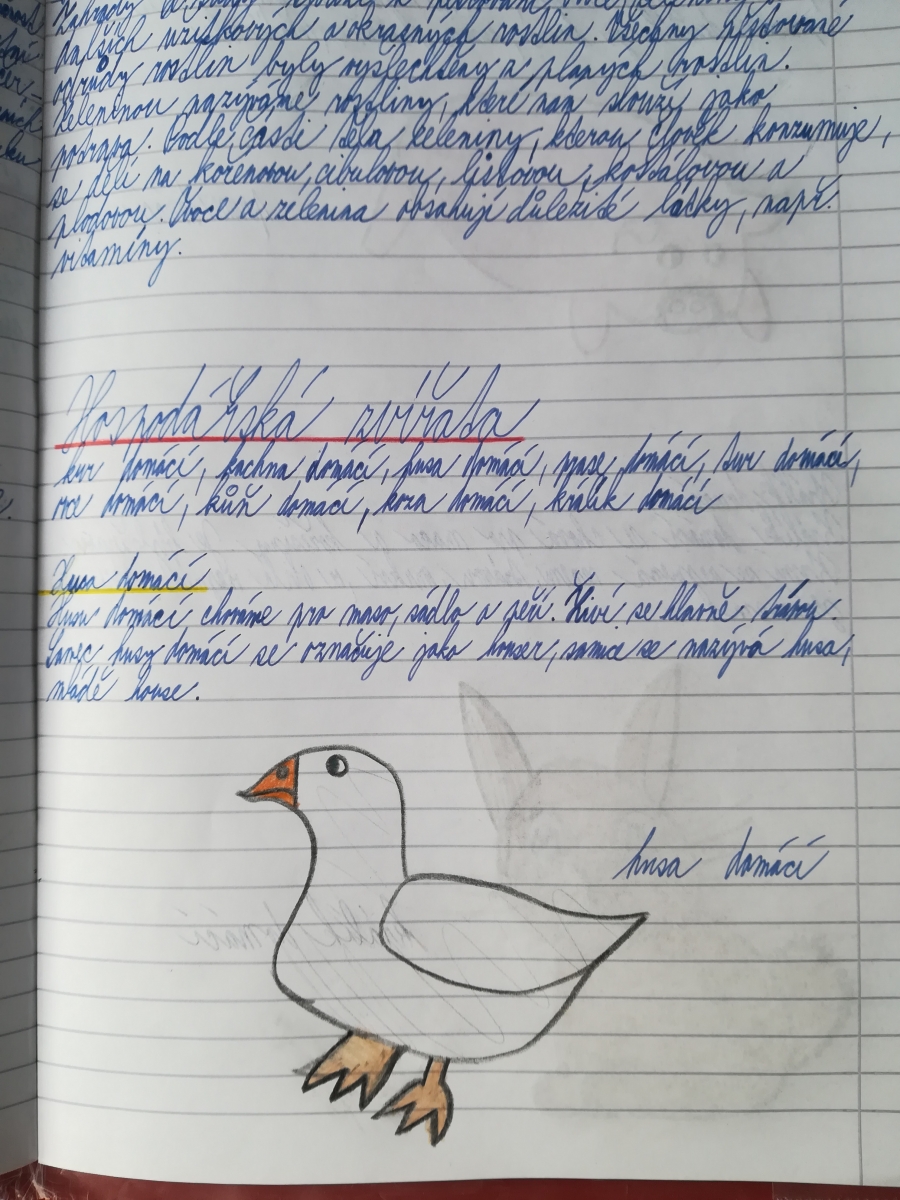 Zahrady a sady
dalších užitkových a okrasných rostlin. Všechny pěstované
odrůdy rostlin byly vyšlechtěny z planých rostlin.
Zeleninou nazýváme rostliny, které nám slouží jako
potrava. Podle části těla zeleniny, kterou člověk konzumuje,
se dělí na kořenovou, cibulovou, listovou, košťálovou a
plodovou. Ovoce a zelenina obsahují důležité látky, např.
vitamíny.
Hospodářská zvířata
kur domácí, kachna domácí, husa domácí, prase domácí, tur domácí,
ovce domácí, kůň domácí, koza domácí, králík domácí
Husa domácí
Husu domácí chováme pro maso, sádlo a peří. Živí se hlavně trávou.
Samec husy domácí se označuje jako houser, samice se nazývá husa,
mládě house.
husa domácí